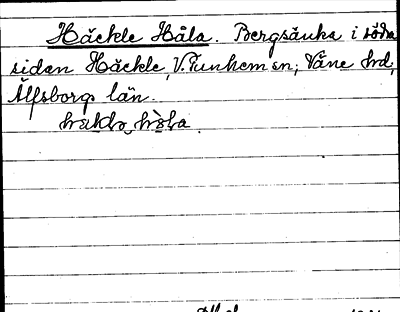 Häckle Håla. Bergsänka i södra
sidan Häckle, V. Tunhem sn, Väne hd,
Älfsborgs län.